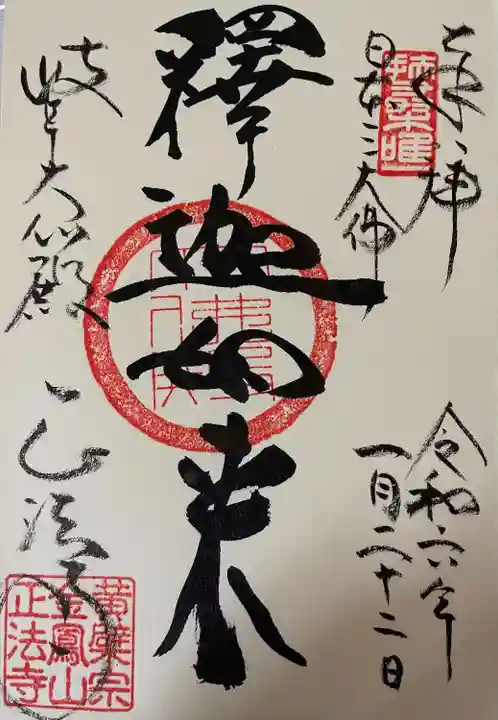 奉拝
日本三大佛
令和六年
一月二十二日
釋迦如来
岐阜大仏殿
正法寺
黄檗宗
金鳳山
正法寺